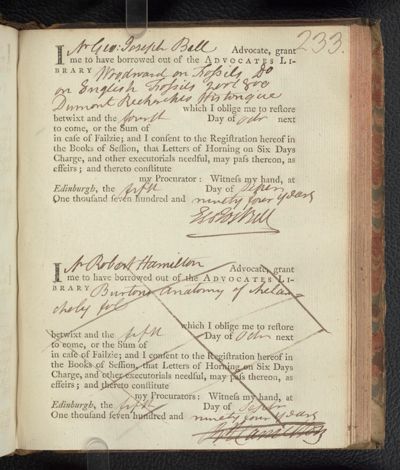 233.
I Mr Geo: Joseph Bell Advocate, grant
me to have borrowed out of the ADVOCATES LI-
BRARY Woodward on Fossils Do
on English Fossils
Dumont Recherches Historique
which I oblige me to restore
betwixt and the fourth Day of Octr next
to come, or the Sum of
in case of Failzie; and I consent to the Registration hereof in
the Books of Session, that Letters of Horning on Six Days
Charge, and other executorials needful, may pass thereon, as
effeirs; and thereto constitute
my Procurator: Witness my hand, at
Edinburgh, the fifth Day of Septem
One thousand seven hundred and ninety four years
Geo Jos Bell
I Mr Robert Hamilton Advocate, grant
me to have borrowed out of the ADVOCATES LI-
BRARY Burtons Anatomy of Melan-
choly fol
which I oblige me to restore
betwixt and the fifth Day of Octr next
to come, or the Sum of
in case of Failzie; and I consent to the Registration hereof in
the Books of Session, that Letters of Horning on Six Days
Charge, and other executorials needful, may pass thereon, as
effeirs; and thereto constitute
my Procurators: Witness my hand, at
Edinburgh, the fifth Day of Septem
One thousand seven hundred and ninety four years